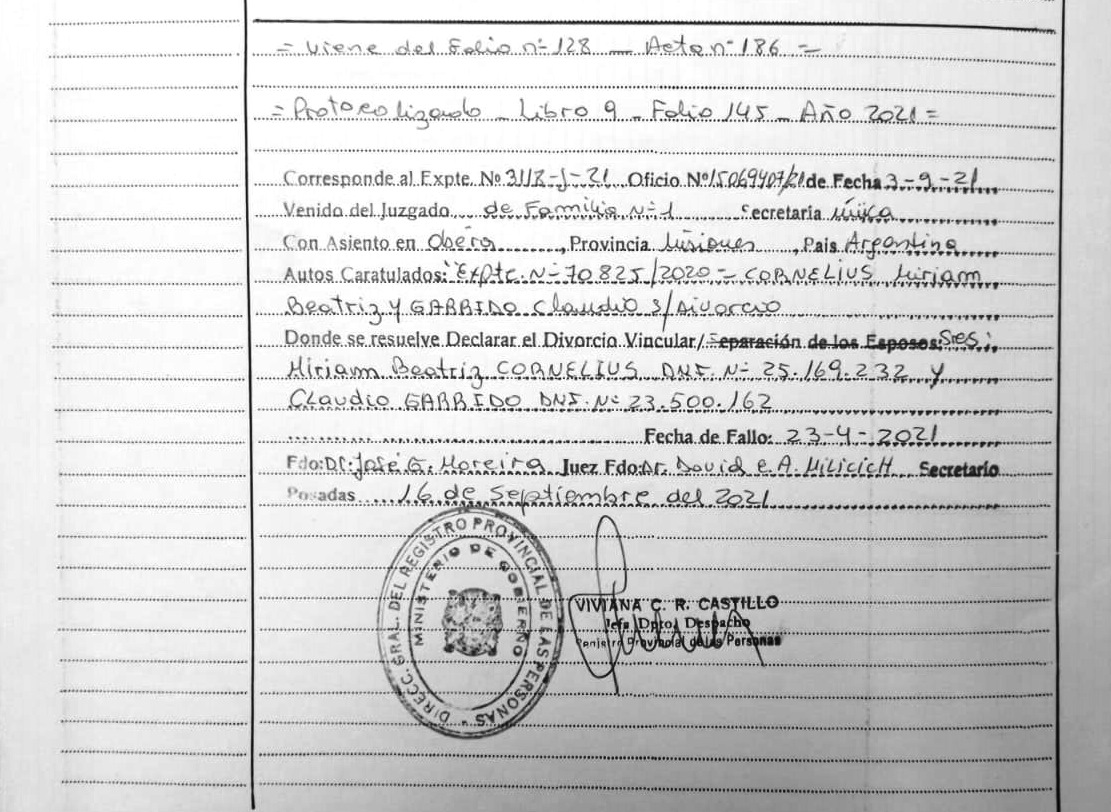 = Viene del Folio nº 128 — Acta nº 186 =
= Protocolizado - Libro 9 - Folio 145 - Año 2021 =
Corresponde al Expte. Nº 3118-J-21 Oficio Nº 15069407/21 de Fecha 3-9-21
Venido del Juzgado de Familia Nº 1 Secretaria Única
Con Asiento en Oberá, Provincia Misiones, Pais Argentina
Autos Caratulados: "Expte. Nº 70825/2020 - CORNELIUS Miriam
Beatriz y GARRIDO Claudio s/Divorcio
Donde se resuelve Declarar el Divorcio Vincular/ Separación de los Esposos: Sres:
Miriam Beatriz CORNELIUS DNI. Nº 25.169.232 y
Claudio GARRIDO DNI. Nº 23.500.162
Fecha de Fallo: 23-4-2021
Fdo: Dr. José G. Moreira Juez Fdo: Dr. David E. A. MILICICH Secretario
Posadas 16 de Septiembre del 2021
DIRECC. GRAL. DEL REGISTRO PROVINCIAL DE LAS PERSONAS -
MINISTERIO DE GOBIERNO
VIVIANA C. R. CASTILLO
Jefa Dpto. Despacho
Registro Provincial de las Personas